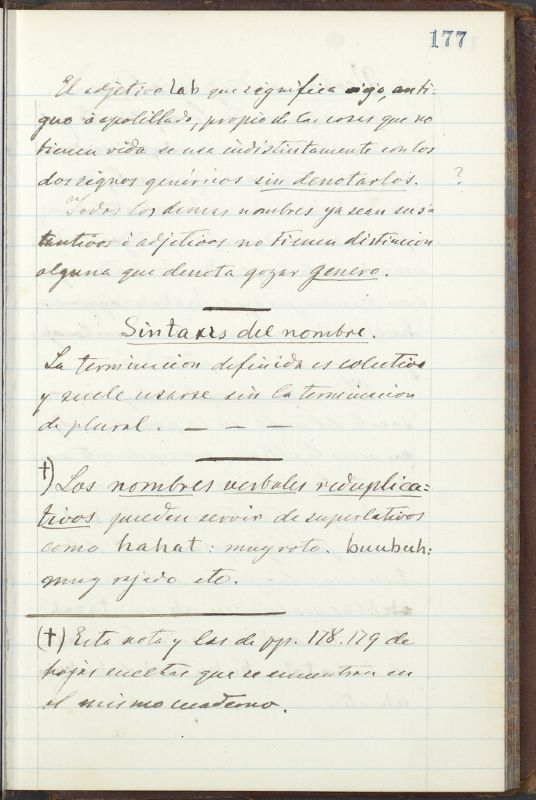 177
El adjetivo lab que significa viejo, anti-
guo ó apolillado, propio de las cosas que no
tienen vida se usa indistintamente con los
dos signos genéricos sin denotarlos. ?
Todos los demas nombres ya sean susta
tantivos ó adjetivos no tienen distincion
alguna que denota gozar genero.
Sintaxis del nombre.
La terminacion definida es colectiva
y suele usarse sin la terminacion
de plural. — — —
†) Los nombres verbales reduplica=
tivos pueden servir de superlativos
como hahat: muy roto. buubuh:
muy rajado etc.
(†) Esta nota y las de pp. 178. 179 de
hojas sueltas que se encuentran en
el mismo cuaderno.